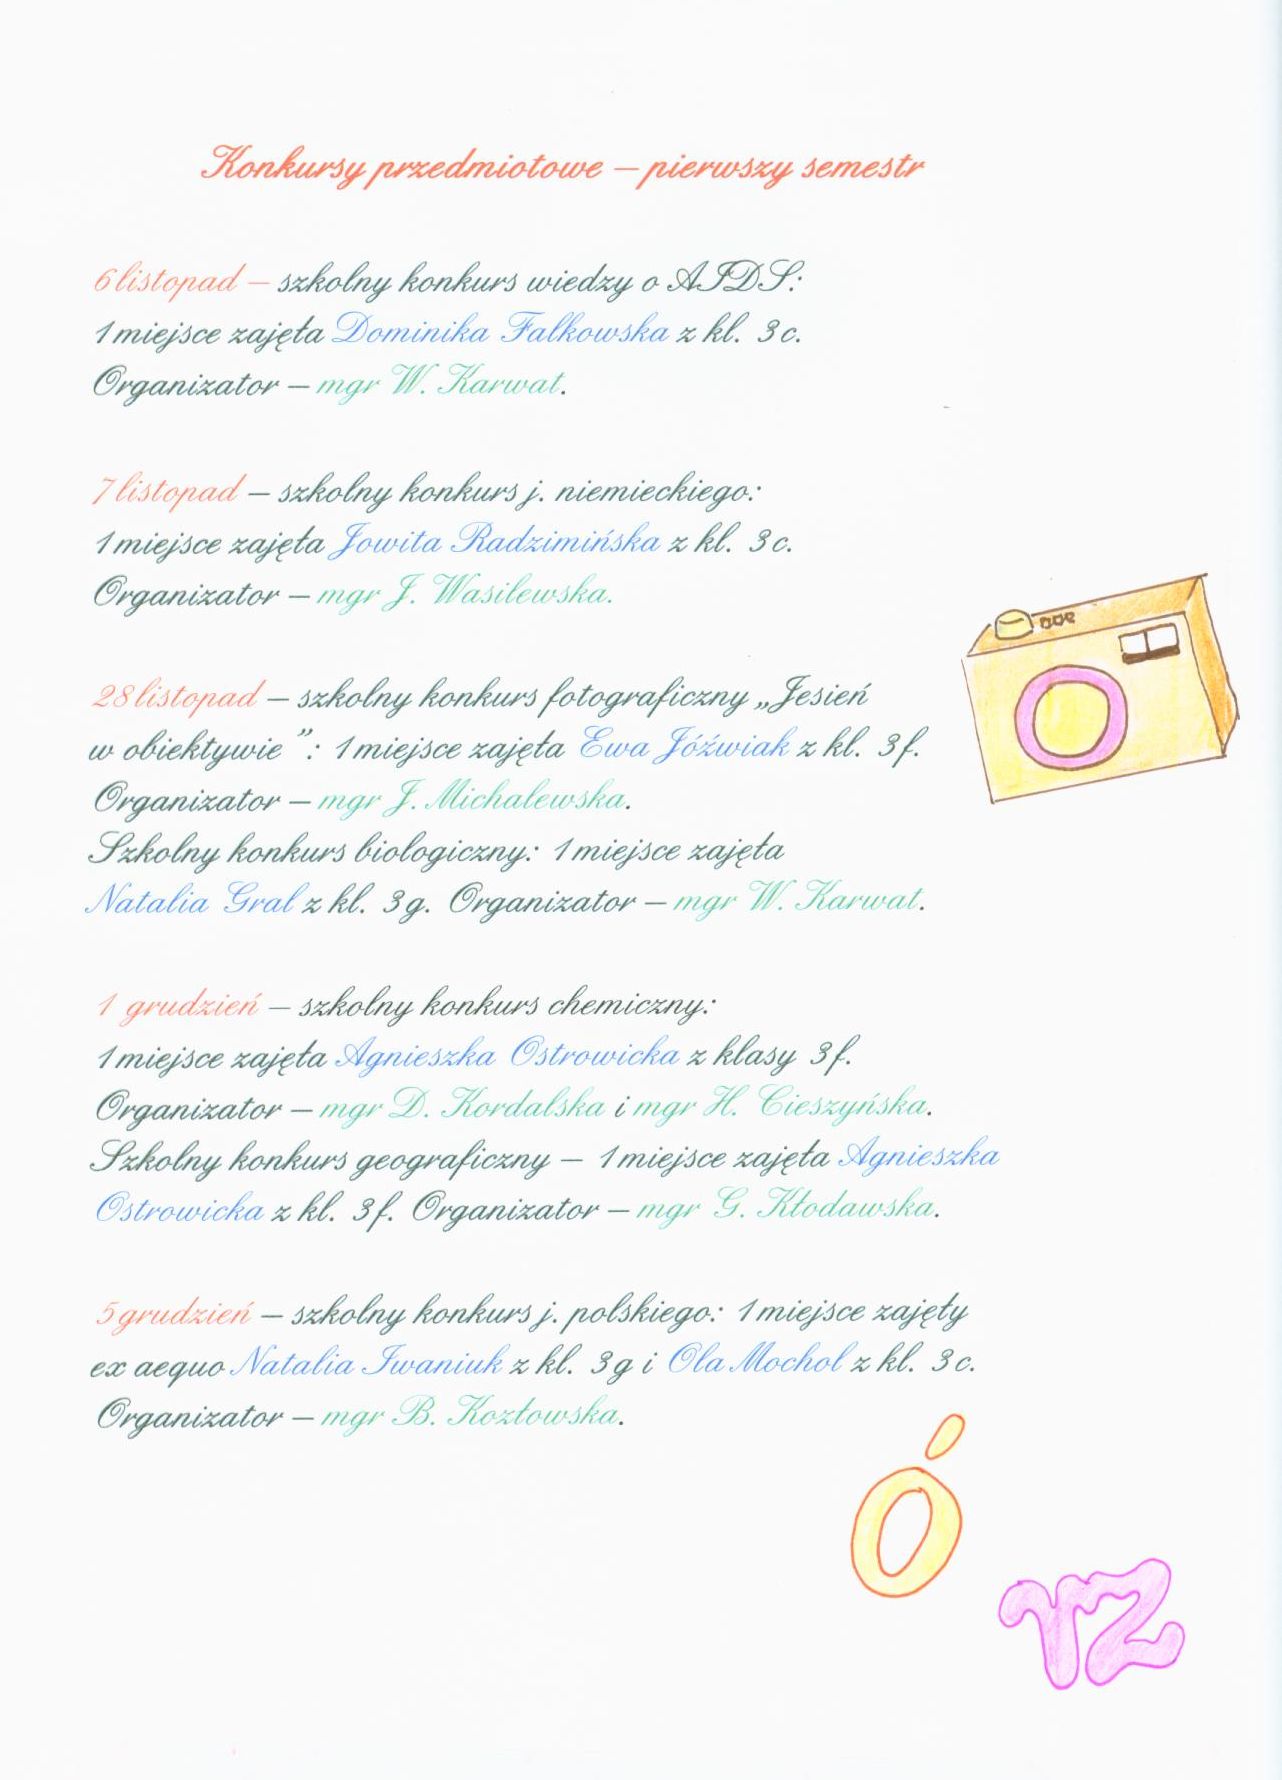 Konkursy przedmiotowe – pierwszy semestr
6 listopad – szkolny konkurs wiedzy o AIDS:
1 miejsce zajęła Dominika Falkowska z kl. 3 c.
Organizator – mgr W. Karwat.
7 listopad – szkolny konkurs j. niemieckiego:
1 miejsce zajęła Jowita Radzimińska z kl. 3 c.
Organizator – mgr J. Wasilewska.
28 listopad – szkolny konkurs fotograficzny „Jesień
w obiektywie ”: 1 miejsce zajęła Ewa Jóźwiak z kl. 3 f.
Organizator – mgr J. Michalewska.
Szkolny konkurs biologiczny: 1 miejsce zajęła
Natalia Gral z kl. 3 g. Organizator – mgr W. Karwat.
1 grudzień – szkolny konkurs chemiczny:
1 miejsce zajęła Agnieszka Ostrowicka z klasy 3 f.
Organizator – mgr D. Kordalska i mgr H. Cieszyńska.
Szkolny konkurs geograficzny – 1 miejsce zajęła Agnieszka
Ostrowicka z kl. 3 f. Organizator – mgr G. Kłodawska.
5 grudzień – szkolny konkurs j. polskiego: 1 miejsce zajęły
ex aequo Natalia Iwaniuk z kl. 3 g i Ola Mochol z kl. 3 c.
Organizator – mgr B. Kozłowska.
Ó
rz